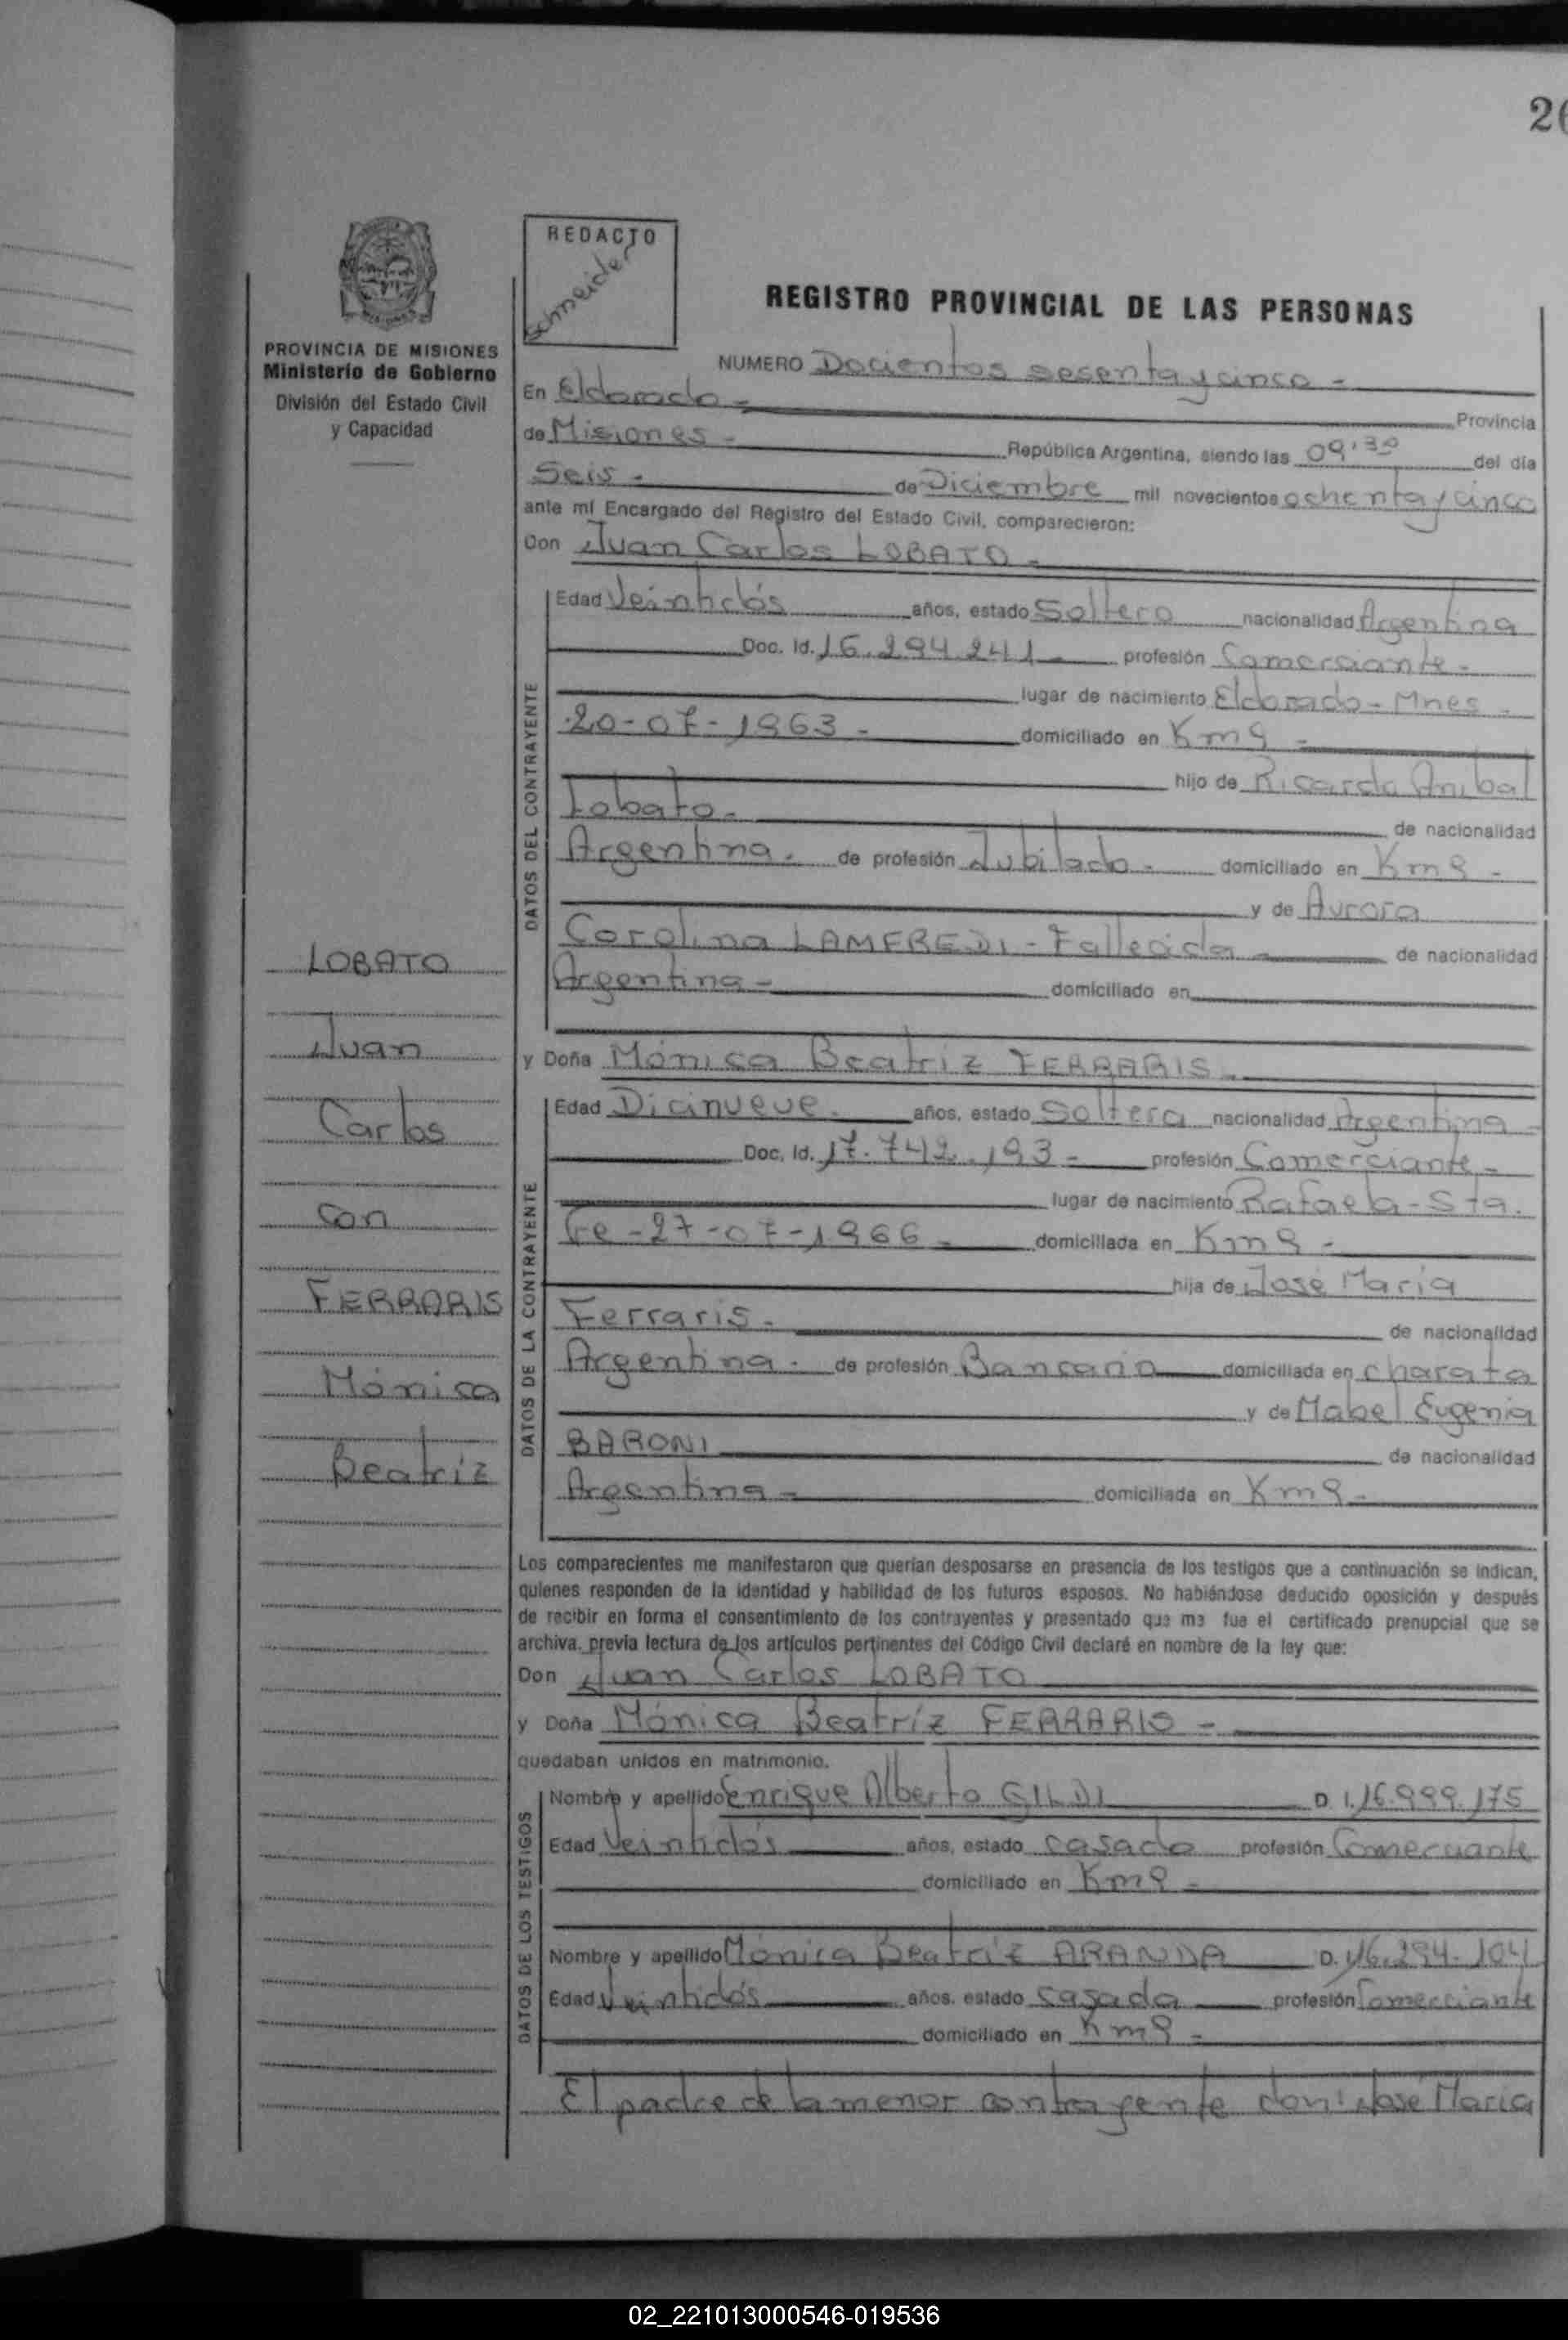 26
REDACTO
Schneider
REGISTRO PROVINCIAL DE LAS PERSONAS
PROVINCIA DE MISIONES
Ministerio de Gobierno
División del Estado Civil
y Capacidad
NUMERO Docientos sesenta y cinco -
En Eldorado - Provincia
de Misiones - República Argentina, siendo las 09'30 del día
Seis - de Diciembre mil novecientos ochenta y cinco
ante mí Encargado del Registro del Estado Civil, comparecieron:
Don Juan Carlos LOBATO -
DATOS DEL CONTRAYENTE
Edad Veintidós años, estado Soltero nacionalidad Argentina
Doc. Id. 16.294.241 - profesión Comerciante -
lugar de nacimiento Eldorado - Mnes -
20-07-1963 - domiciliado en Km 9 -
hijo de Ricardo Anibal
Lobato - de nacionalidad
Argentina - de profesión Jubilado - domiciliado en Km 9 -
y de Aurora
Carolina LAMFREDI - Fallecida de nacionalidad
Argentina - domiciliado en
y Doña Mónica Beatriz FERRARIS -
DATOS DE LA CONTRAYENTE
Edad Dicinueve - años, estado Soltera nacionalidad Argentina -
Doc. Id. 17.742.193 - profesión Comerciante -
lugar de nacimiento Rafaela - Sta.
Fe - 27-07-1966 - domiciliada en Km 9 -
hija de José María
Ferraris - de nacionalidad
Argentina - de profesión Bancario domiciliada en charata
y de Mabel Eugenia
BARONI de nacionalidad
Argentina - domiciliada en Km 9 -
LOBATO
Juan
Carlos
con
FERRARIS
Mónica
Beatriz
Los comparecientes me manifestaron que querían desposarse en presencia de los testigos que a continuación se indican,
quienes responden de la identidad y habilidad de los futuros esposos. No habiéndose deducido oposición y después
de recibir en forma el consentimiento de los contrayentes y presentado que me fue el certificado prenupcial que se
archiva, previa lectura de los artículos pertinentes del Código Civil declaré en nombre de la ley que:
Don Juan Carlos LOBATO
y Doña Mónica Beatríz FERRARIS -
quedaban unidos en matrimonio.
DATOS DE LOS TESTIGOS
Nombre y apellido Enrique Alberto GILDI D. I. 16.999.175
Edad Veintidós años, estado casado profesión Comerciante
domiciliado en Km 9 -
Nombre y apellido Mónica Beatríz ARANDA D. I. 16.294.104
Edad Veintidós años, estado casada profesión Comerciante
domiciliado en Km 9 -
El padre de la menor contrayente don: José María
02_221013000546-019536